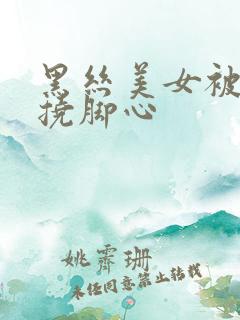 黑丝美女被
挠脚心
姚霁珊
未经同意禁止转载